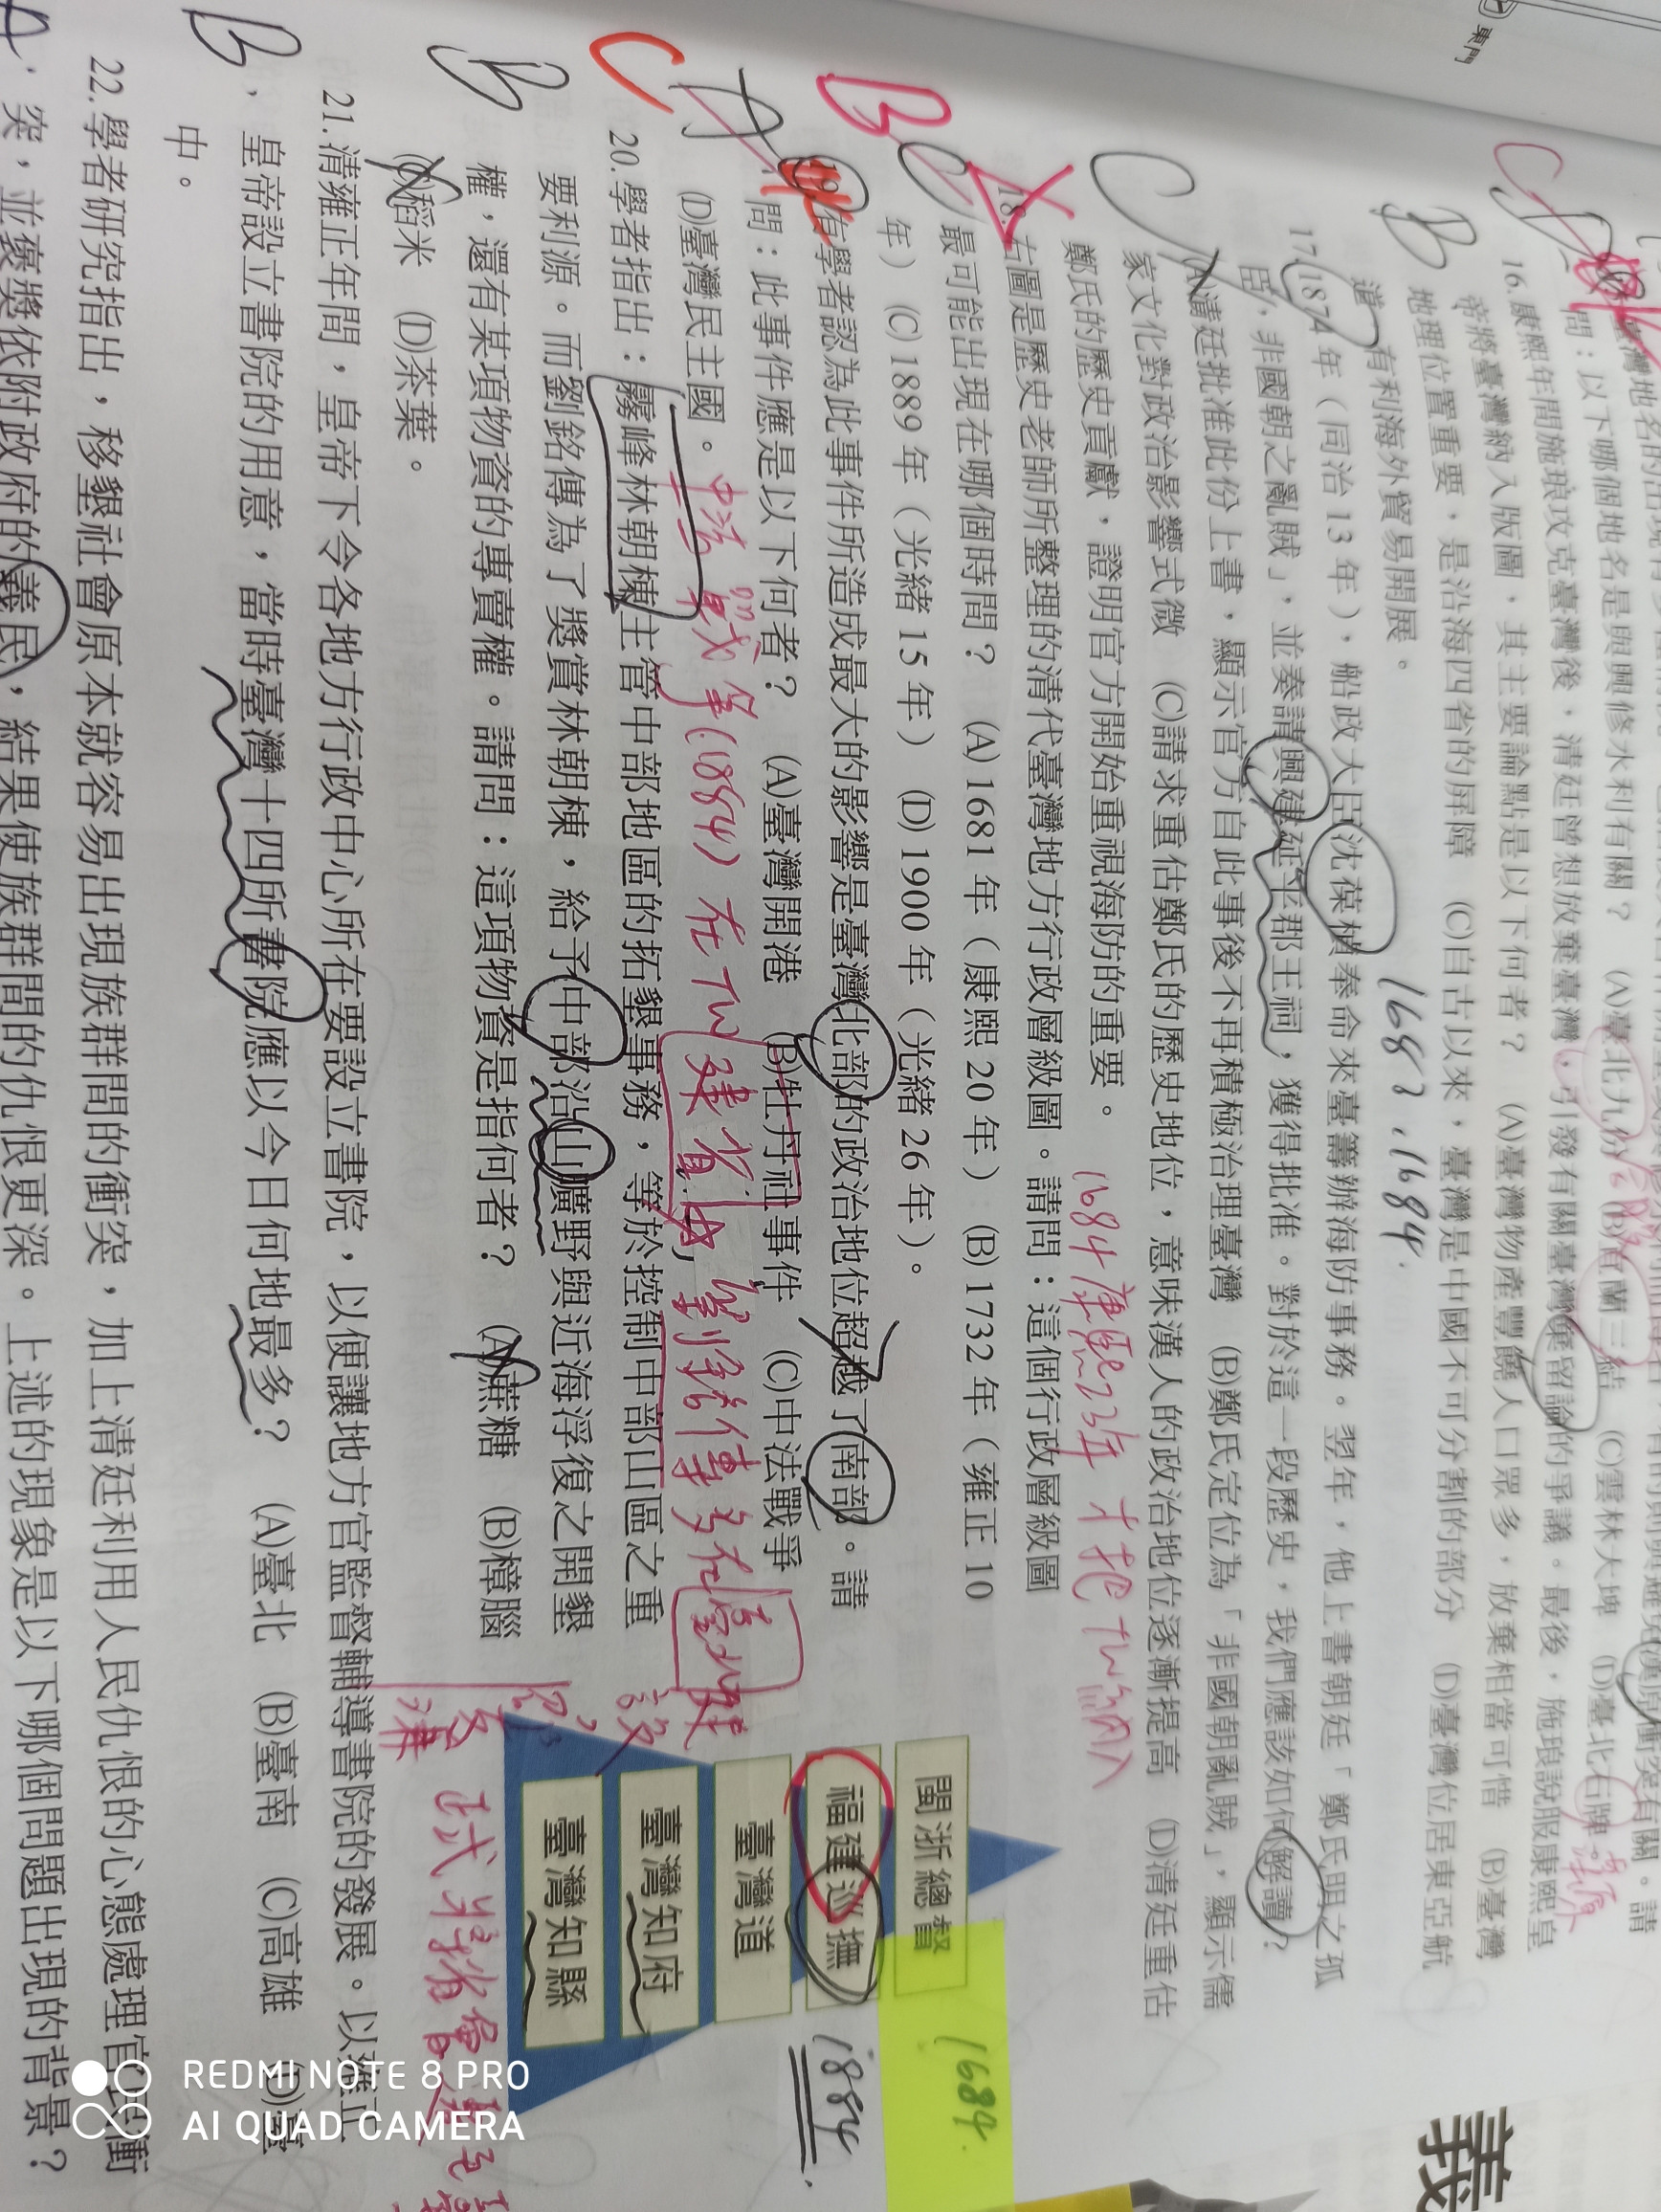 臺灣地名的出現有
問：以下哪個地名是與興修水利有關？　(A)臺北九份　(B)宜蘭三結　(C)雲林大埤　(D)臺北石牌。
16.康熙年間施琅攻克臺灣後，清廷曾想放棄臺灣，引發有關臺灣棄留論的爭議。最後，施琅說服康熙皇
帝將臺灣納入版圖，其主要論點是以下何者？　(A)臺灣物產豐饒人口眾多，放棄相當可惜　(B)臺灣
地理位置重要，是沿海四省的屏障　(C)自古以來，臺灣是中國不可分割的部分　(D)臺灣位居東亞航
道，有利海外貿易開展。
1683、1684.
17.1874年（同治13年），船政大臣沈葆楨奉命來臺籌辦海防事務。翌年，他上書朝廷「鄭氏明之孤
臣，非國朝之亂賊」，並奏請興建延平郡王祠，獲得批准。對於這一段歷史，我們應該如何解讀？
(A)清廷批准此份上書，顯示官方自此事後不再積極治理臺灣　(B)鄭氏定位為「非國朝亂賊」，顯示儒
家文化對政治影響式微　(C)請求重估鄭氏的歷史地位，意味漢人的政治地位逐漸提高　(D)清廷重估
鄭氏的歷史貢獻，證明官方開始重視海防的重要。
1684康熙23年 才把TW納入
18.右圖是歷史老師所整理的清代臺灣地方行政層級圖。請問：這個行政層級圖
最可能出現在哪個時間？　(A) 1681年（康熙20年）　(B) 1732年（雍正10
年）　(C) 1889年（光緒15年）　(D) 1900年（光緒26年）。
閩浙總督
福建巡撫
臺灣道
臺灣知府
臺灣知縣
1684.
1884.
19.有學者認為此事件所造成最大的影響是臺灣北部的政治地位超越了南部。請
問：此事件應是以下何者？　(A)臺灣開港　(B)牡丹社事件　(C)中法戰爭
(D)臺灣民主國。
中法戰爭(1884) 在TW建省
20.學者指出：霧峰林朝棟主管中部地區的拓墾事務，等於控制中部山區之重
要利源。而劉銘傳為了獎賞林朝棟，給予中部沿山曠野與近海浮復之開墾
權，還有某項物資的專賣權。請問：這項物資是指何者？　(A)蔗糖　(B)樟腦
(C)稻米　(D)茶葉。
21.清雍正年間，皇帝下令各地方行政中心所在要設立書院，以便讓地方官監督輔導書院的發展。以雍正
皇帝設立書院的用意，當時臺灣十四所書院應以今日何地最多？　(A)臺北　(B)臺南　(C)高雄　(D)臺
中。
22.學者研究指出，移墾社會原本就容易出現族群間的衝突，加上清廷利用人民仇恨的心態處理官民衝
突，並褒獎依附政府的義民，結果使族群間的仇恨更深。上述的現象是以下哪個問題出現的背景？
義
REDMI NOTE 8 PRO
AI QUAD CAMERA